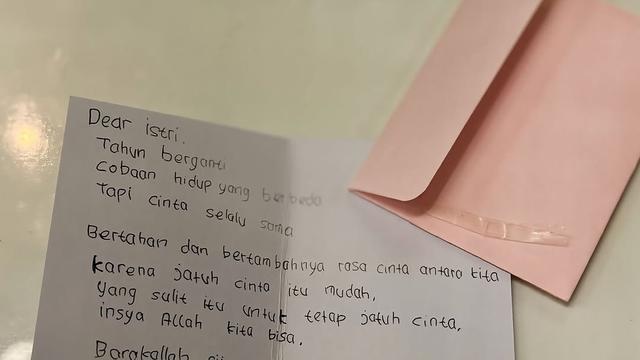 Dear istri.
Tahun berganti
Cobaan hidup yang berbeda
Tapi cinta selalu sama
Bertahan dan bertambahnya rasa cinta antara kita
karena jatuh cinta itu mudah,
yang sulit itu untuk tetap jatuh cinta,
insya Allah kita bisa.
Barakallah